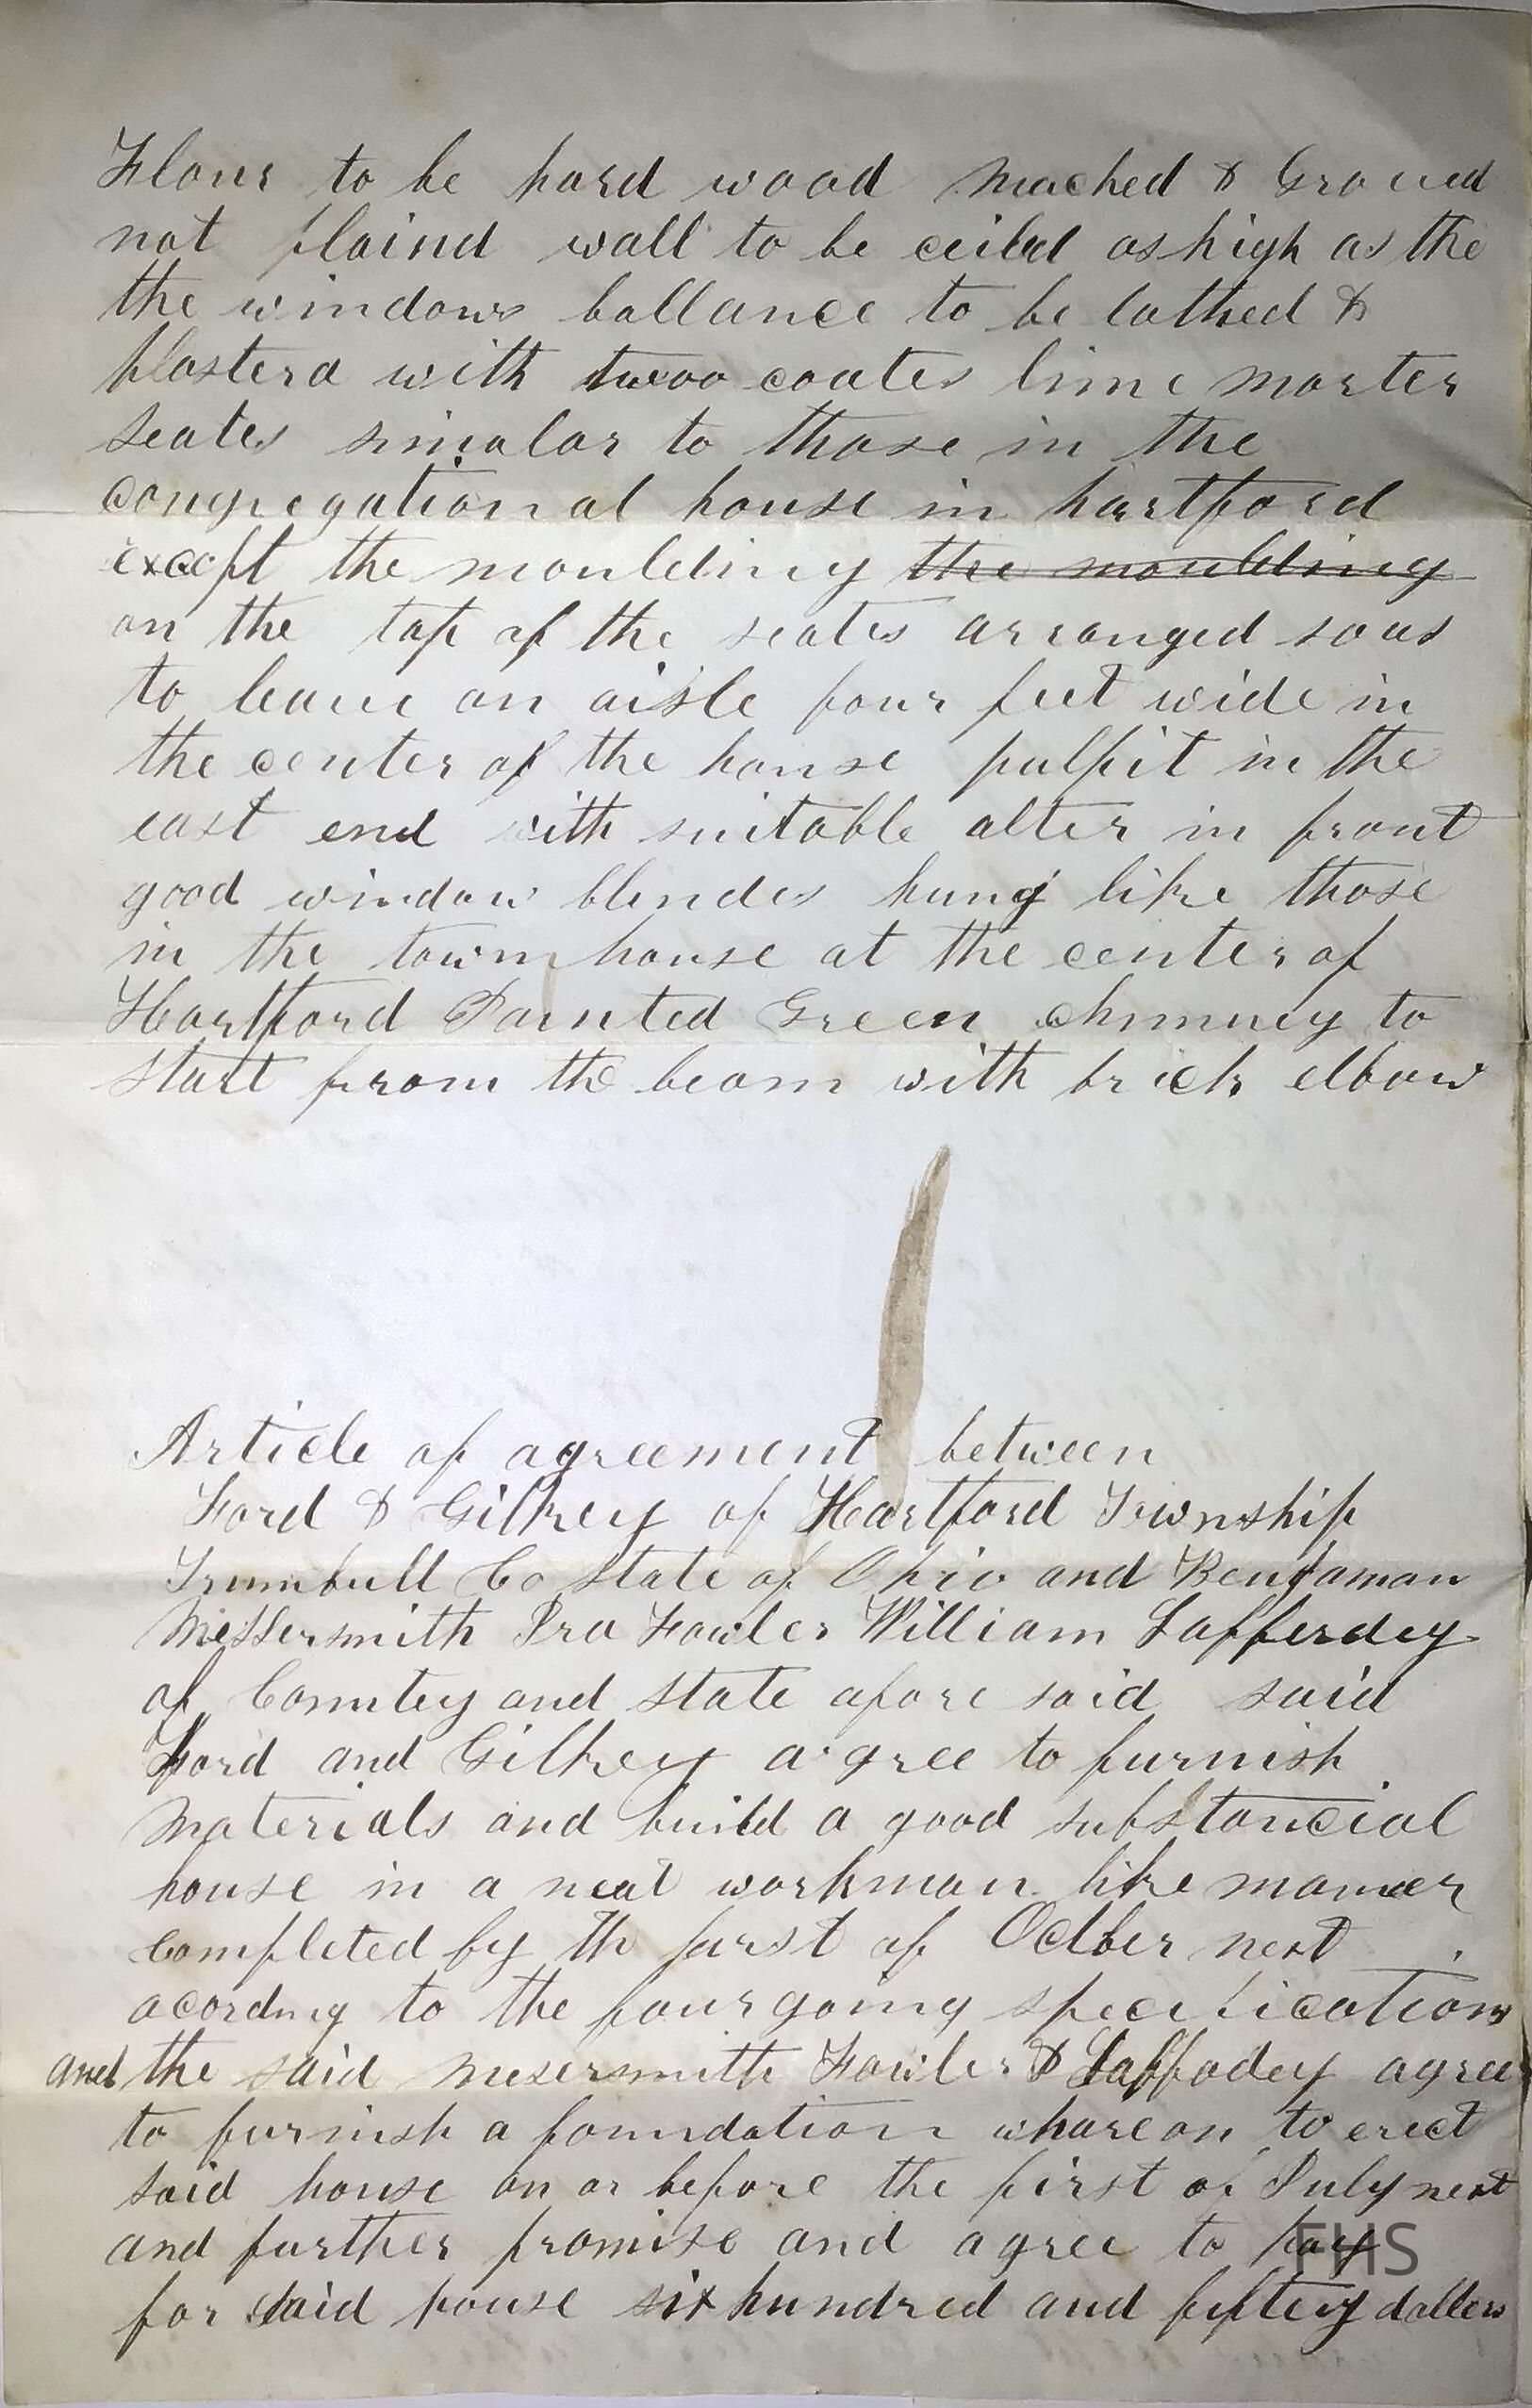 Flour to be hard wood mached & Groved
not plaind wall to be ceiled as high as the
the windows ballance to be lathed &
plasterd with twoo coates lime morter
seates simalar to those in the
congregational house in hartford
except the moulding the moulding
on the top of the seates arranged so as
to leave an aisle four feet wide in
the center of the house pulpit in the
east end with suitable alter in front
good window blindes hung like those
in the town house at the center of
Hartford Painted Green chimney to
start from the beam with brick elbow
Article of agreement between
Ford & Gilkey of Hartford Township
Trumbull Co State of Ohio and Benjaman
Messersmith Ira Fowler William Lafferdey
of Countey and state afore said said
Ford and Gilkey agree to furnish
materials and build a good substancial
house in a neat workman like manner
completed by th furst of Octber next
acording to the fourgoing specifications
and the said mesersmith Fowler & Laffadey agree
to furnish a foundation whareon to erect
said house on or before the first of July next
and further promise and agree to pay
for said house six hundred and fiftey dollers
FHS